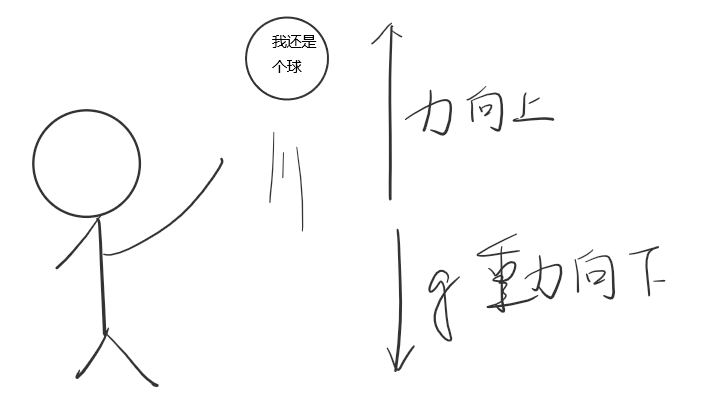 我还是
个球
力向上
g 重力向下